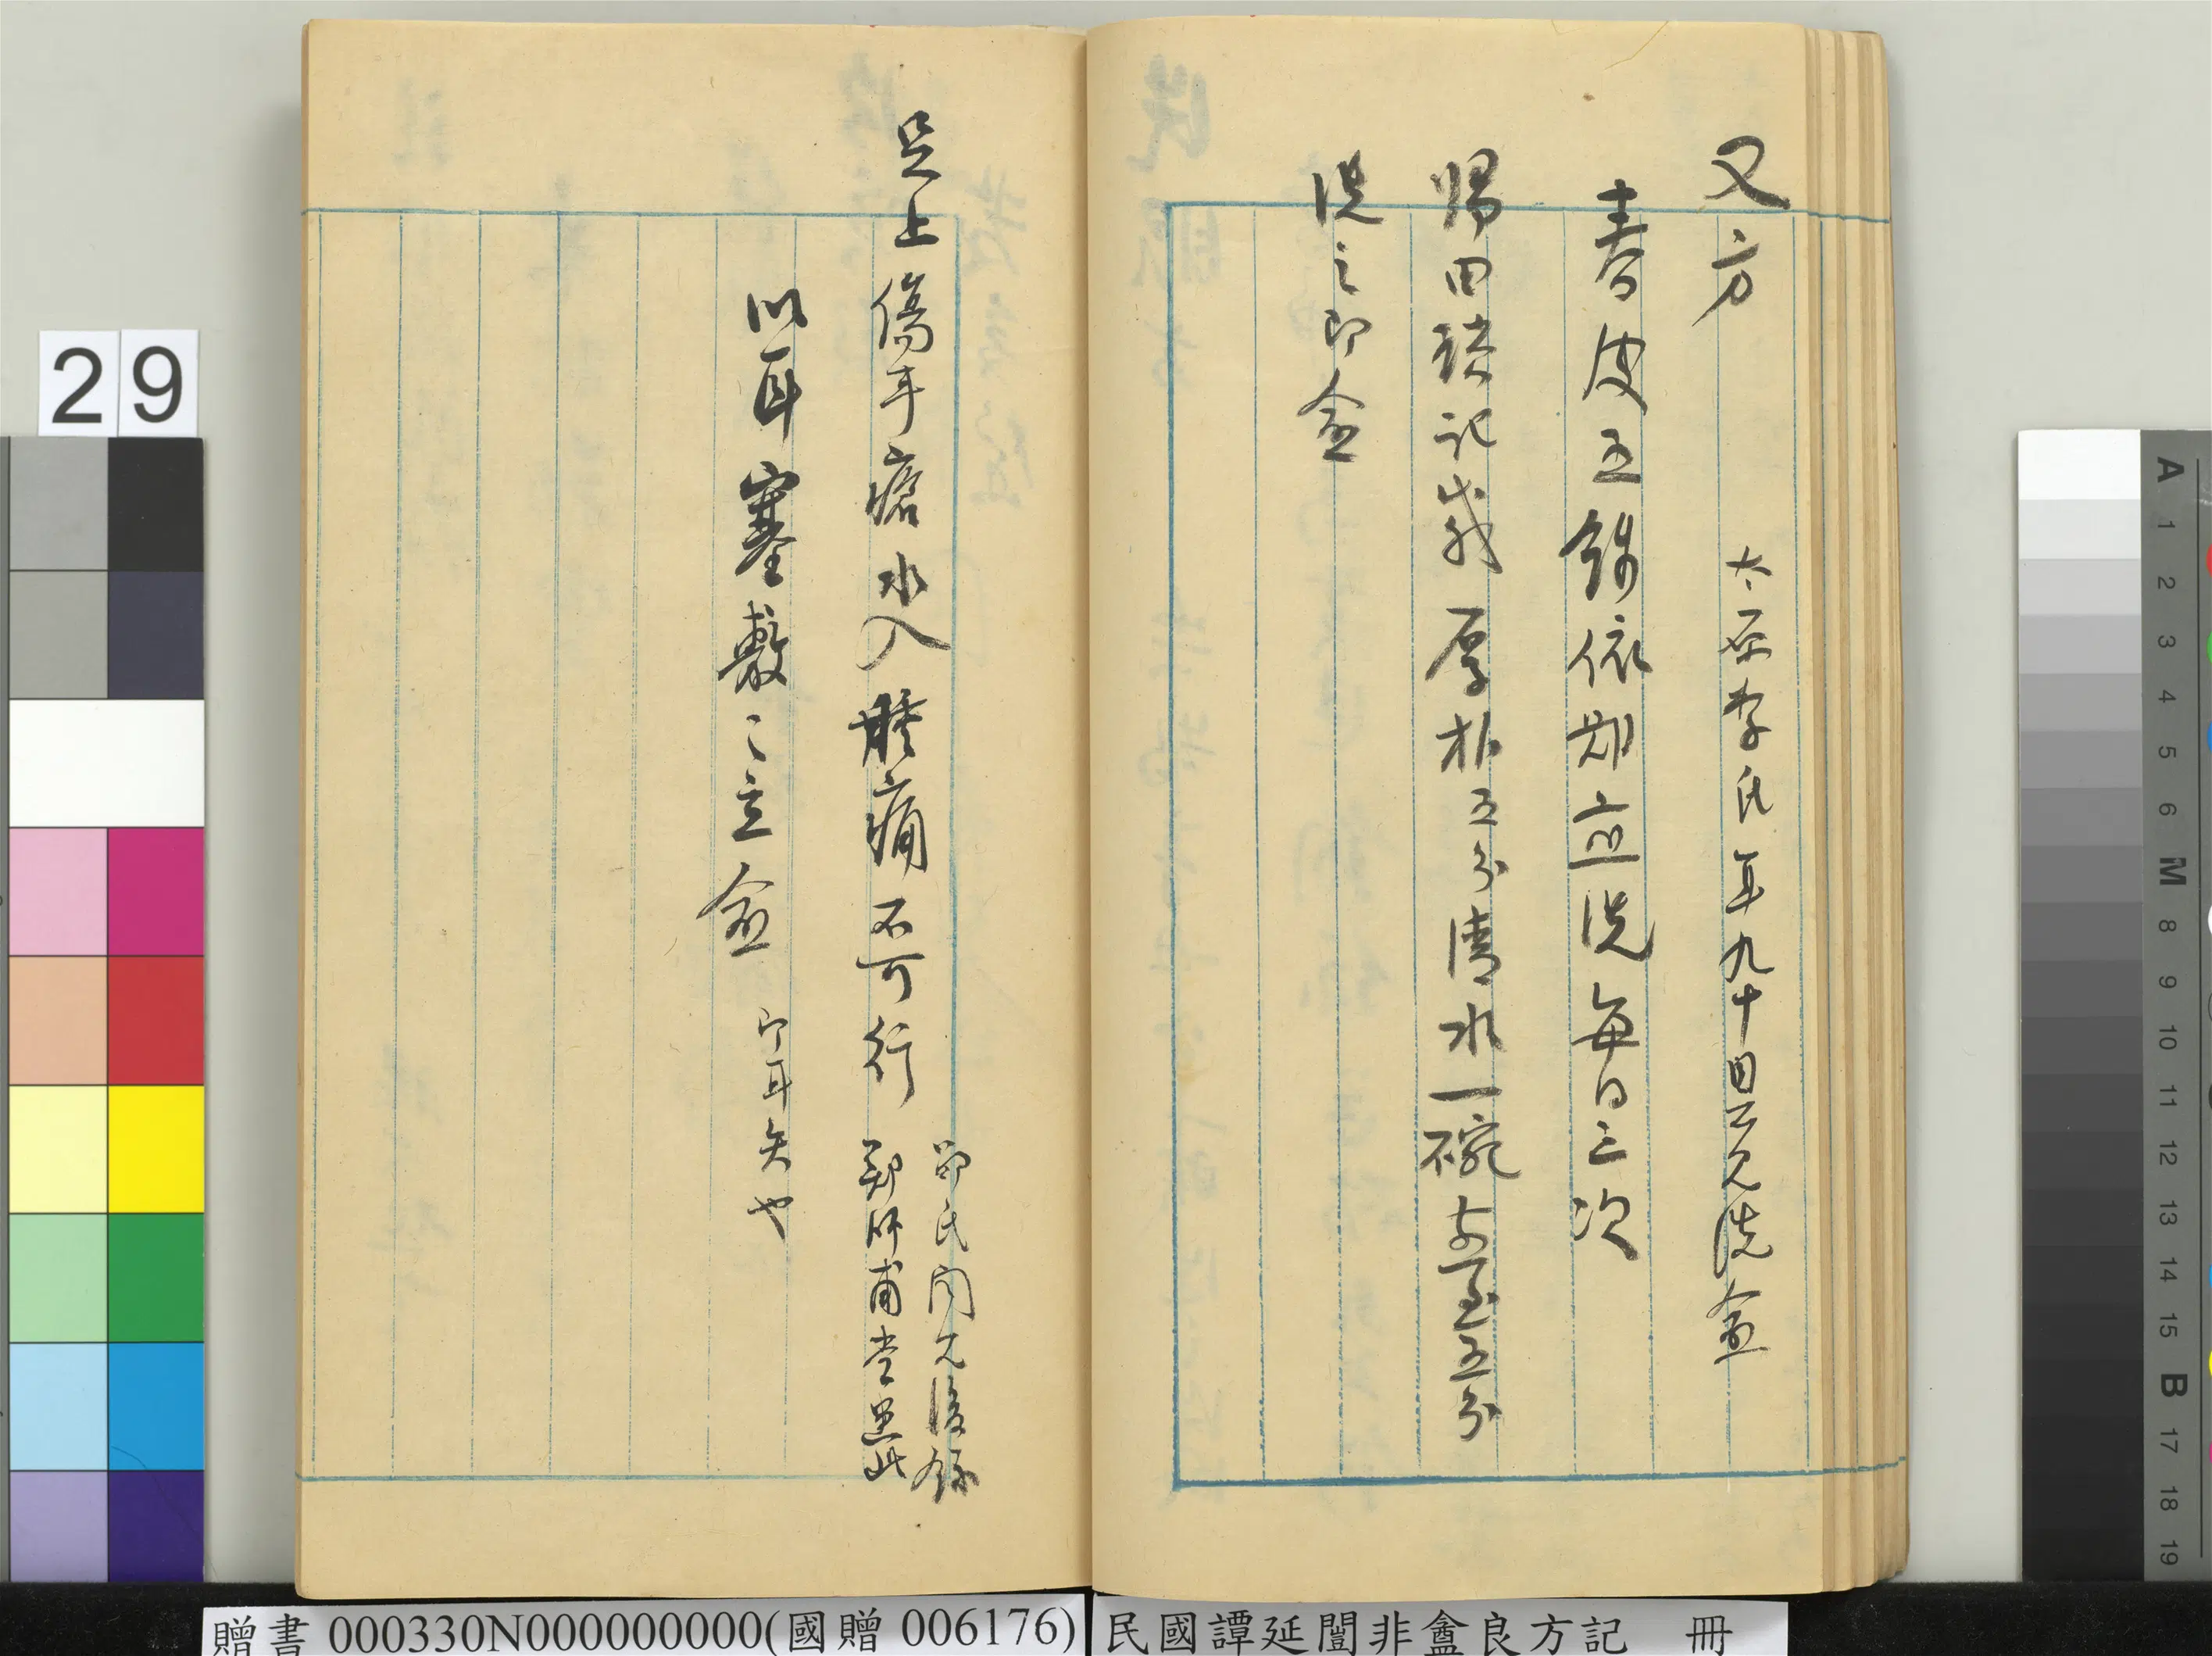 又方　太原李氏年九十因得是洗愈
青皮五錢依期並洗每日三次
歸田瑣記載厚朴五分清水一碗煎至五分
洗之即愈
足上傷手瘡水入腫痛不可行　邵氏聞見後錄
鄭師甫嘗患此
以耳塞敷之立愈　即耳矢也
29
A 1 2 3 4 5 6 M 8 9 10 11 12 13 14 15 B 17 18 19
贈書 000330N000000000(國贈 006176)
民國譚延闓非盦良方記　冊